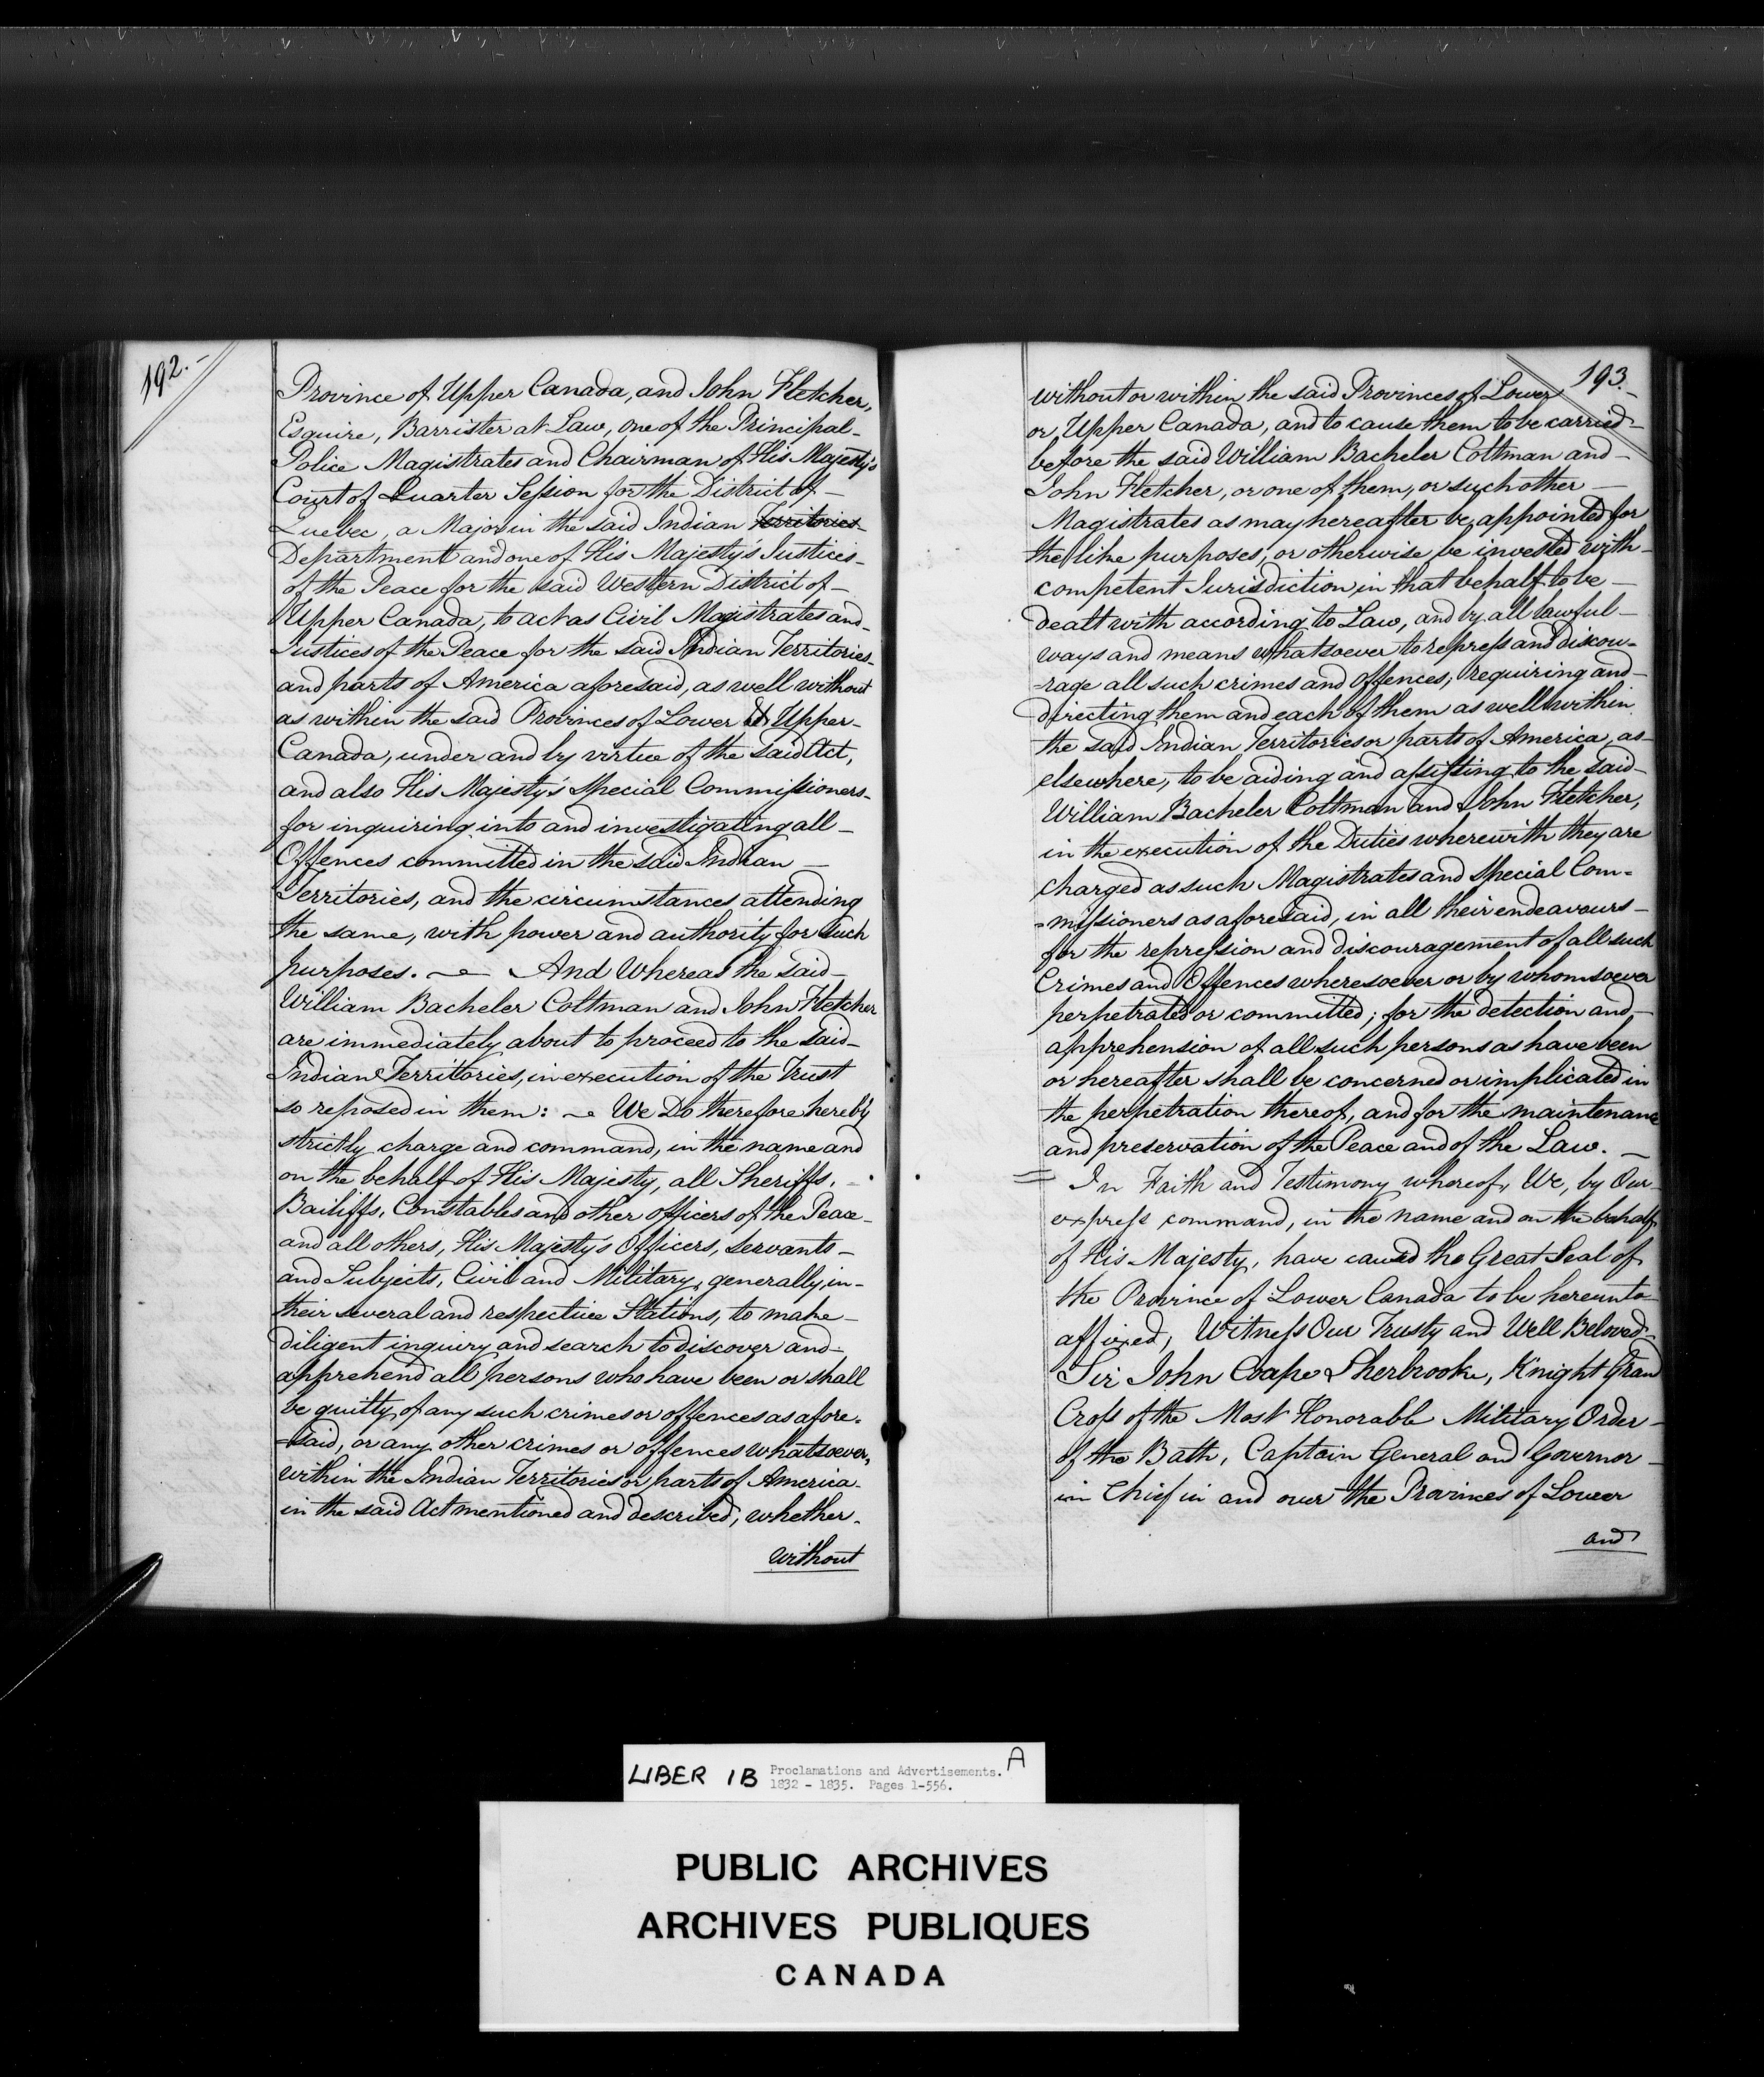 192.-
Province of Upper Canada, and John Fletcher,
Esquire, Barrister at Law, one of the Principal-
Police Magistrates and Chairman of His Majesty's
Court of Quarter Session for the District of-
Quebec, a Major in the said Indian Territories
Department and one of His Majesty's Justices-
of the Peace for the said Western District of-
Upper Canada, to act as Civil Magistrates and-
Justices of the Peace for the said Indian Territories-
and parts of America aforesaid, as well without
as within the said Provinces of Lower & Upper-
Canada, under and by virtue of the said Act,
and also His Majesty's Special Commissioners-
for inquiring into and investigating all-
Offences committed in the said Indian-
Territories, and the circumstances attending
the same, with power and authority for such
purposes. - And Whereas the said-
William Bacheler Coltman and John Fletcher
are immediately about to proceed to the said-
Indian Territories, in execution of the Trust
so reposed in them: - We Do therefore hereby
strictly charge and command, in the name and
on the behalf of His Majesty, all Sheriffs,-
Bailiffs, Constables and other officers of the Peace-
and all others, His Majesty's Officers, Servants-
and Subjects, Civil and Military, generally in-
their several and respective Stations, to make-
diligent inquiry and search to discover and-
apprehend all persons who have been or shall
be guilty of any such crimes or offences as afore-
=said, or any other crimes or offences whatsoever,
within the Indian Territories or parts of America-
in the said Act mentioned and described, whether-
without
193.
without or within the said Provinces of Lower
or Upper Canada, and to cause them to be carried-
before the said William Bacheler Coltman and-
John Fletcher, or one of them, or such other-
Magistrates as may hereafter be appointed for
the like purposes, or otherwise be invested with-
competent Jurisdiction in that behalf to be-
dealt with according to Law, and by all lawful-
ways and means whatsoever to repress and discou-
=rage all such crimes and offences; requiring and-
directing them and each of them as well within
the said Indian Territories or parts of America, as-
elsewhere, to be aiding and assisting to the said-
William Bacheler Coltman and John Fletcher,
in the execution of the Duties wherewith they are
charged as such Magistrates and Special Com=
=missioners as aforesaid, in all their endeavours-
for the repression and discouragement of all such
Crimes and Offences wheresoever or by whomsoever
perpetrated or committed; for the detection and-
apprehension of all such persons as have been
or hereafter shall be concerned or implicated in
the perpetration thereof, and for the maintenance
and preservation of the Peace and of the Law.-
= In Faith and Testimony whereof, We, by Our
express command, in the name and on the behalf
of His Majesty, have caused the Great Seal of
the Province of Lower Canada to be hereunto
affixed, Witness Our Trusty and Well Beloved-
Sir John Coape Sherbrooke, Knight Grand
Cross of the Most Honorable Military Order-
of the Bath, Captain General and Governor-
in Chief in and over the Provinces of Lower
and
LIBER 1B Proclamations and Advertisements. A
1832 - 1835. Pages 1-556.
PUBLIC ARCHIVES
ARCHIVES PUBLIQUES
CANADA